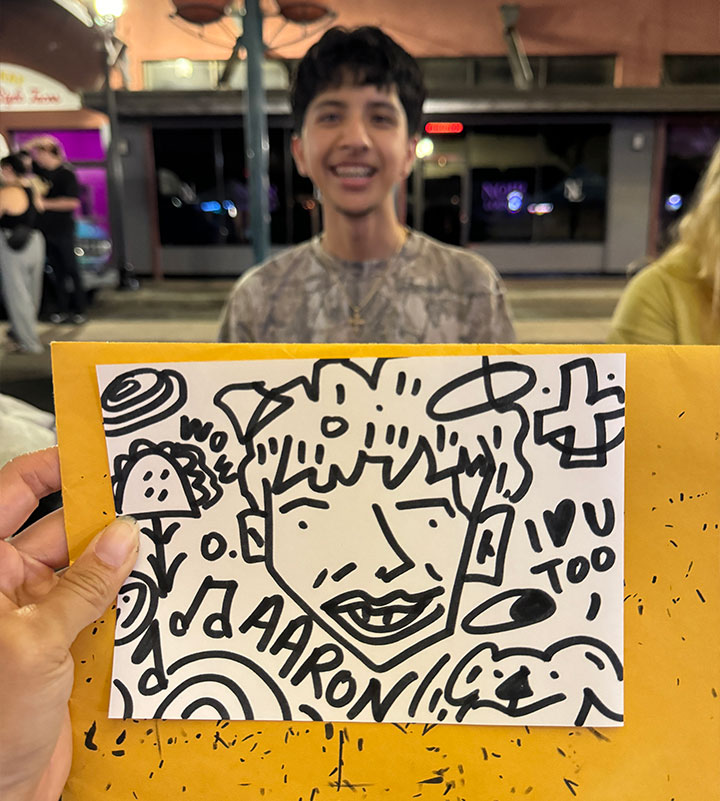 WOE
I ♥ U
TOO
AARON!!